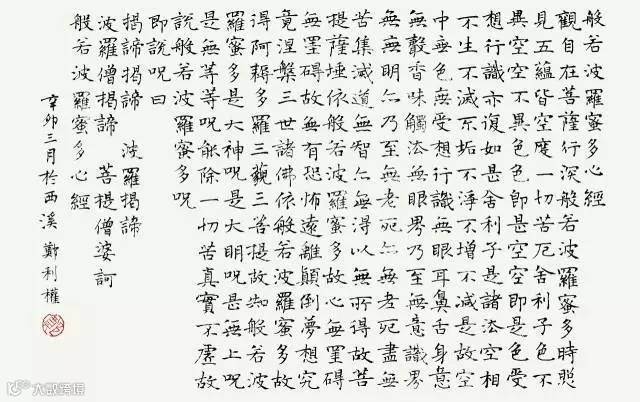 般若波羅蜜多心經
觀自在菩薩行深般若波羅蜜多時照
見五蘊皆空度一切苦厄舍利子色不
異空空不異色色即是空空即是色受
想行識亦復如是舍利子是諸法空相
不生不滅不垢不淨不增不減是故空
中無色無受想行識無眼耳鼻舌身意
無聲香味觸法無眼界乃至無意識界
無無明亦乃至無老死亦無老死盡無
苦集滅道無智亦無得以無所得故菩
提薩埵依般若波羅蜜多故心無罣礙
無罣礙故無有恐怖遠離顛倒夢想究
竟涅槃三世諸佛依般若波羅蜜多故
得阿耨多羅三藐三菩提故知般若波
羅蜜多是大神呪是大明呪是無上呪
是無等等呪能除一切苦真實不虛故
說般若波羅蜜多呪
即說呪曰
揭諦揭諦 波羅揭諦
波羅僧揭諦 菩提僧婆訶
般若波羅蜜多心經
辛卯三月於西溪鄭利權
大数跨境